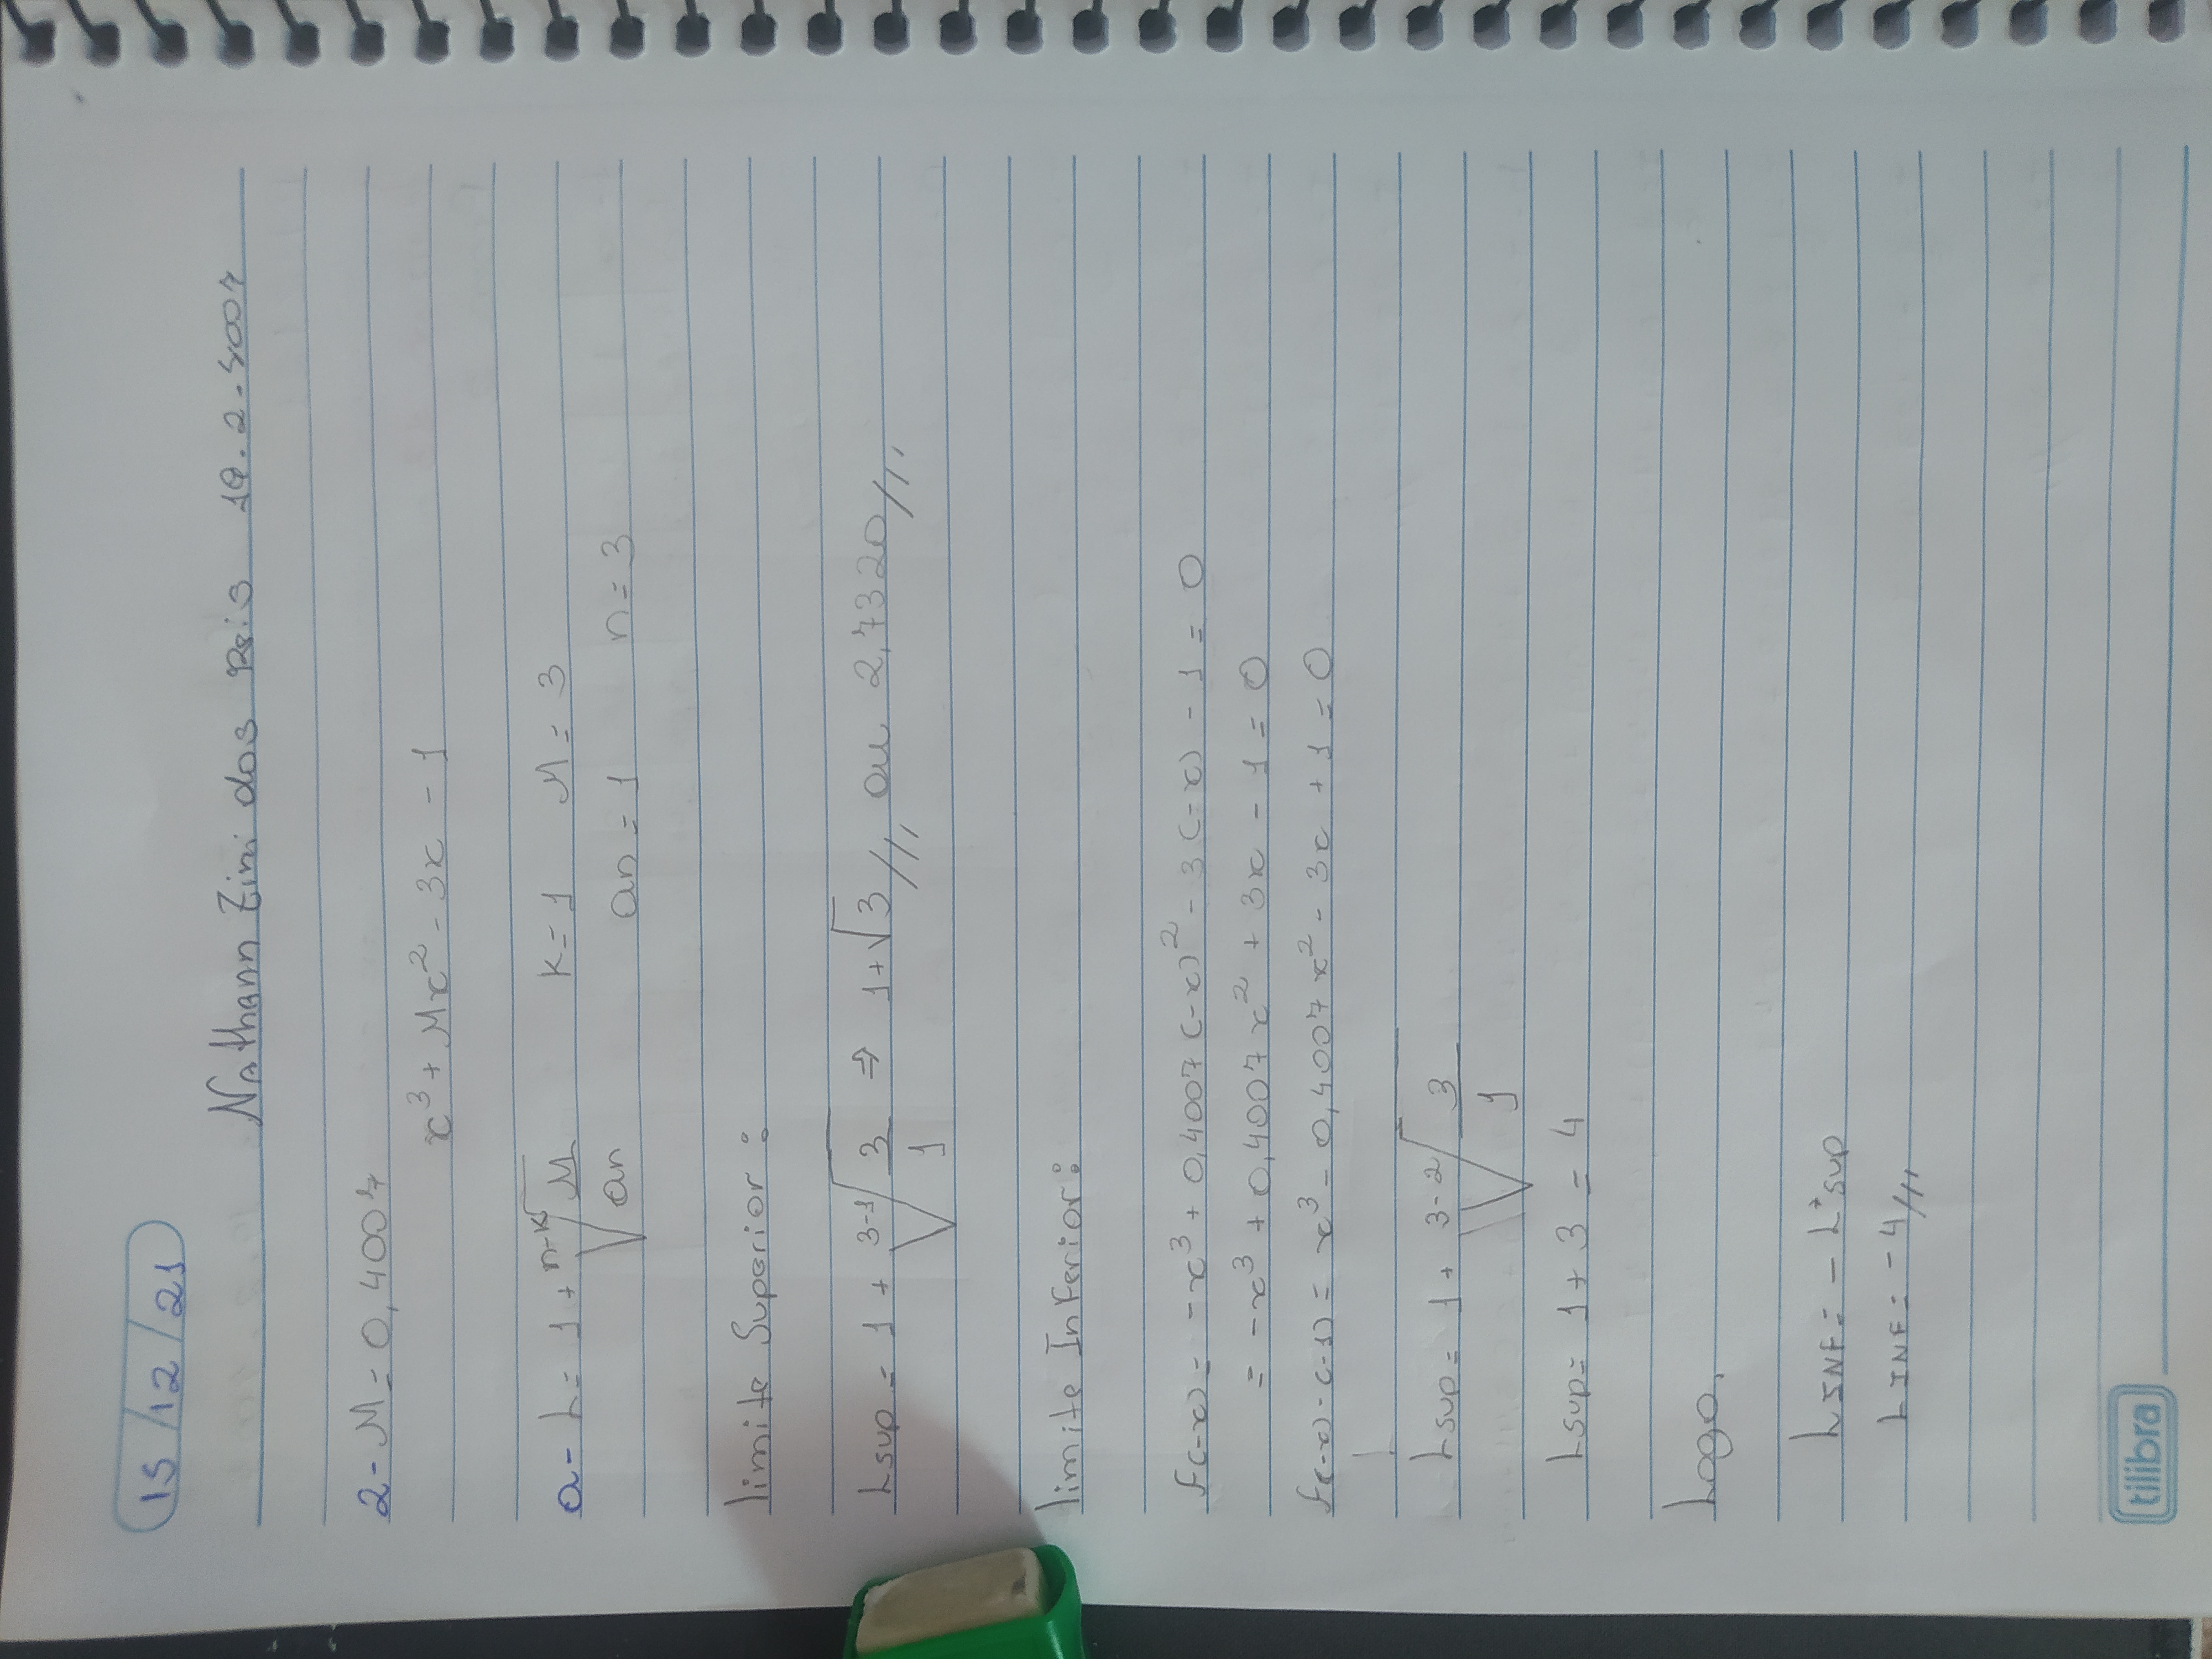 15/12/21
Nathann Zini dos Reis 19.2.4007
2- M = 0,4007
x³ + Mx² - 3x - 1
a- L = 1 + ⁿ⁻ᴷ√(M/an) K = 1 M = 3
an = 1 n = 3
limite Superior:
Lsup = 1 + ³⁻¹√(3/1) ⇒ 1+√3 /// ou 2,7320 ///
limite Inferior:
f(-x) = -x³ + 0,4007(-x)² - 3(-x) - 1 = 0
= -x³ + 0,4007x² + 3x - 1 = 0
f(-x)·(-1) = x³ - 0,4007x² - 3x + 1 = 0
Lsup = 1 + ³⁻²√(3/1)
Lsup = 1 + 3 = 4
Logo,
LINF = - L'sup
LINF = -4 ///
tilibra